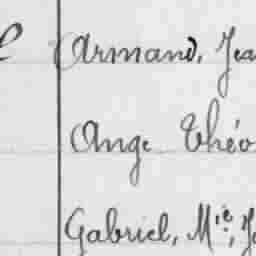 Armand, Jea
Ange Théo
Gabriel, M.ie, J